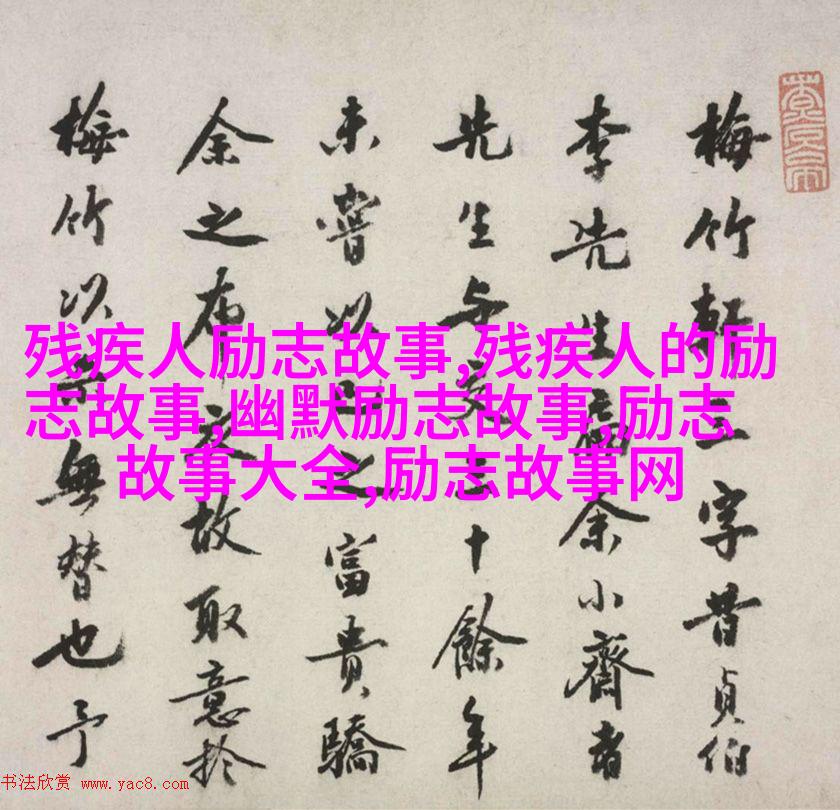 梅竹軒三字昔貞伯
李先生余小齋者
先生与交三十餘年
未嘗以之富貴驕
余之布衣故取意於
梅竹以示無替也予
残疾人励志故事,残疾人的励
志故事,幽默励志故事,励志
故事大全,励志故事网
书法欣赏 www.yac8.com